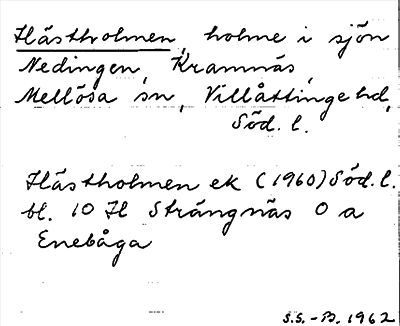 Hästholmen, holme i sjön
Nedingen, Kramnäs,
Mellösa sn, Villåttinge hd,
Söd. l.
Hästholmen ek (1960) Söd. l.
bl. 10 H Strängnäs O a
Enebåga
S.S. - B. 1962